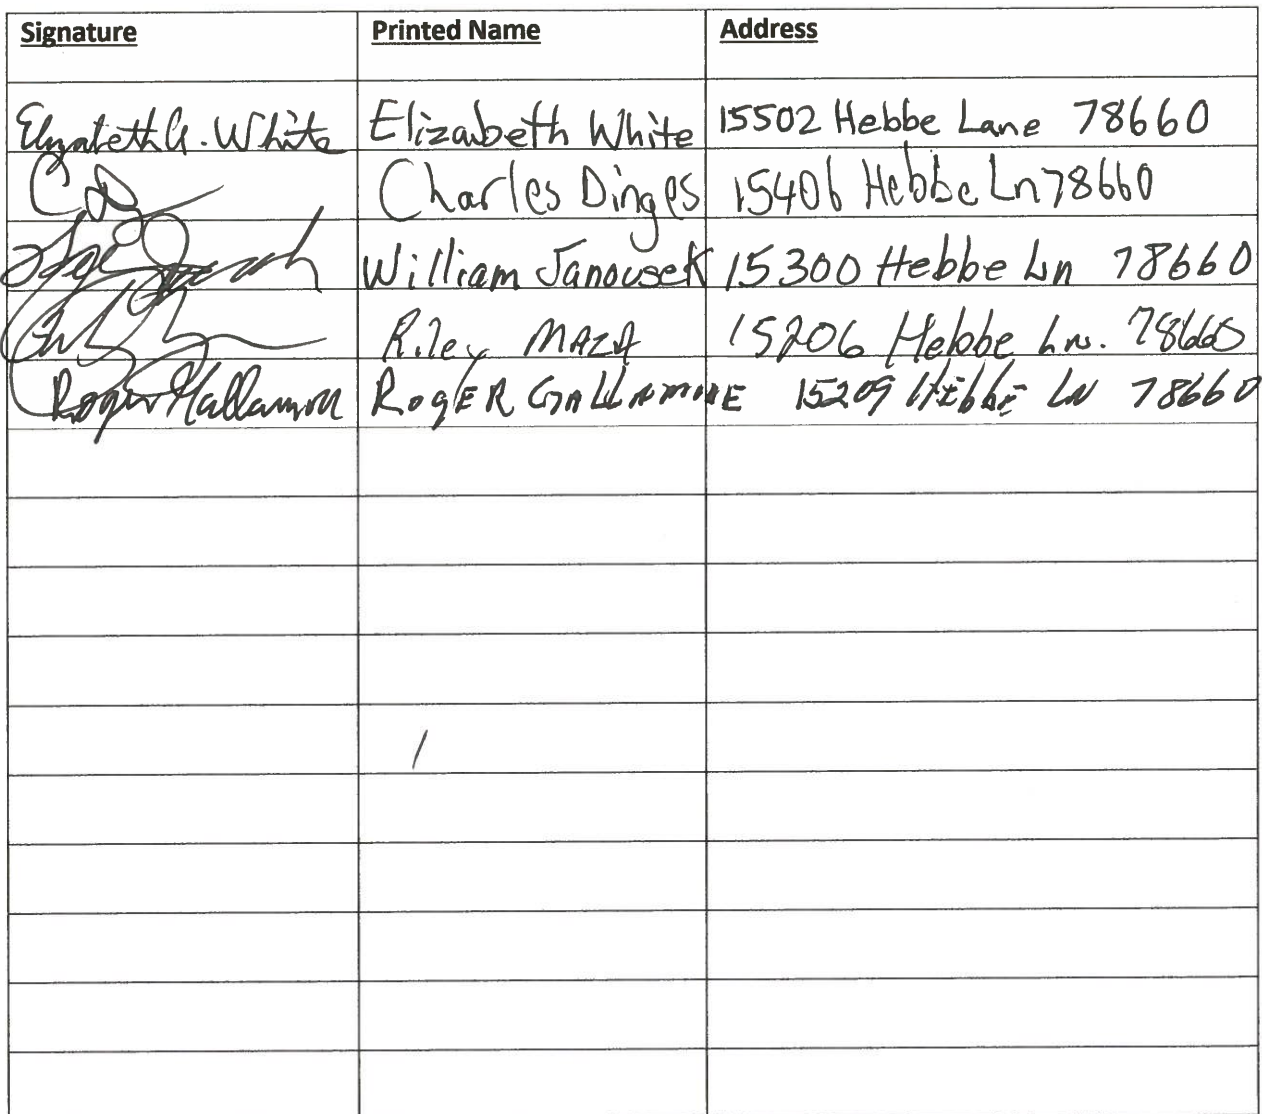 Signature Printed Name Address
Elizabeth A. White Elizabeth White 15502 Hebbe Lane 78660
Charles Dinges 15406 Hebbe Ln 78660
William Janousek 15300 Hebbe Ln 78660
Riley MAZA 15206 Hebbe Ln. 78660
Roger Gallamore ROGER GALLAMORE 15209 HEbbE LN 78660